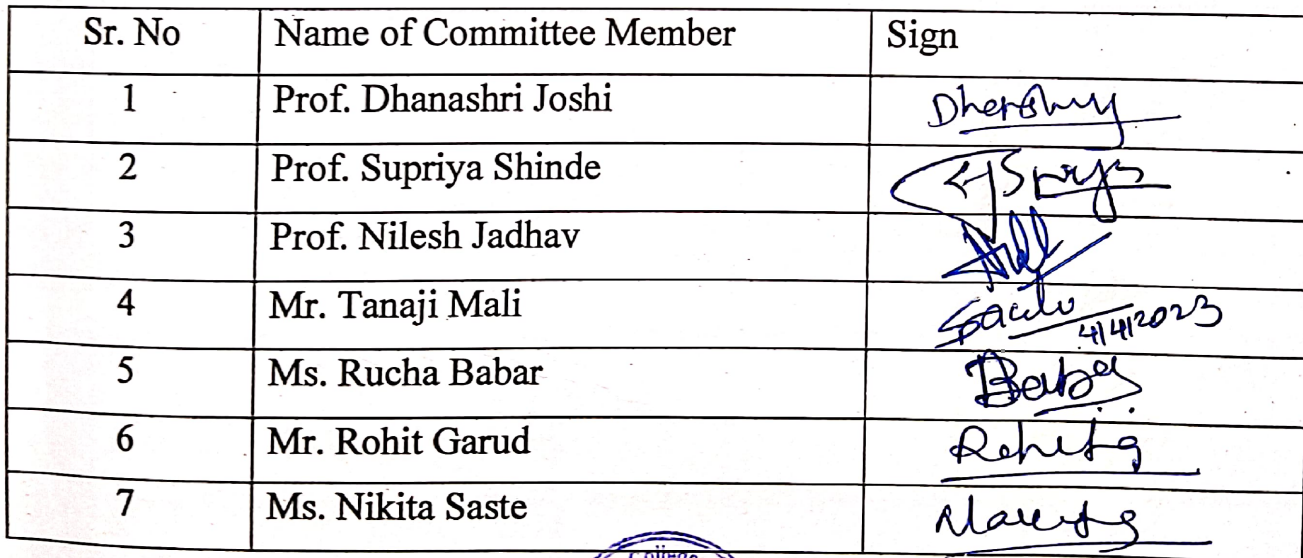 Sr. No Name of Committee Member Sign
1 Prof. Dhanashri Joshi
2 Prof. Supriya Shinde
3 Prof. Nilesh Jadhav
4 Mr. Tanaji Mali 4/4/2023
5 Ms. Rucha Babar
6 Mr. Rohit Garud
7 Ms. Nikita Saste
College